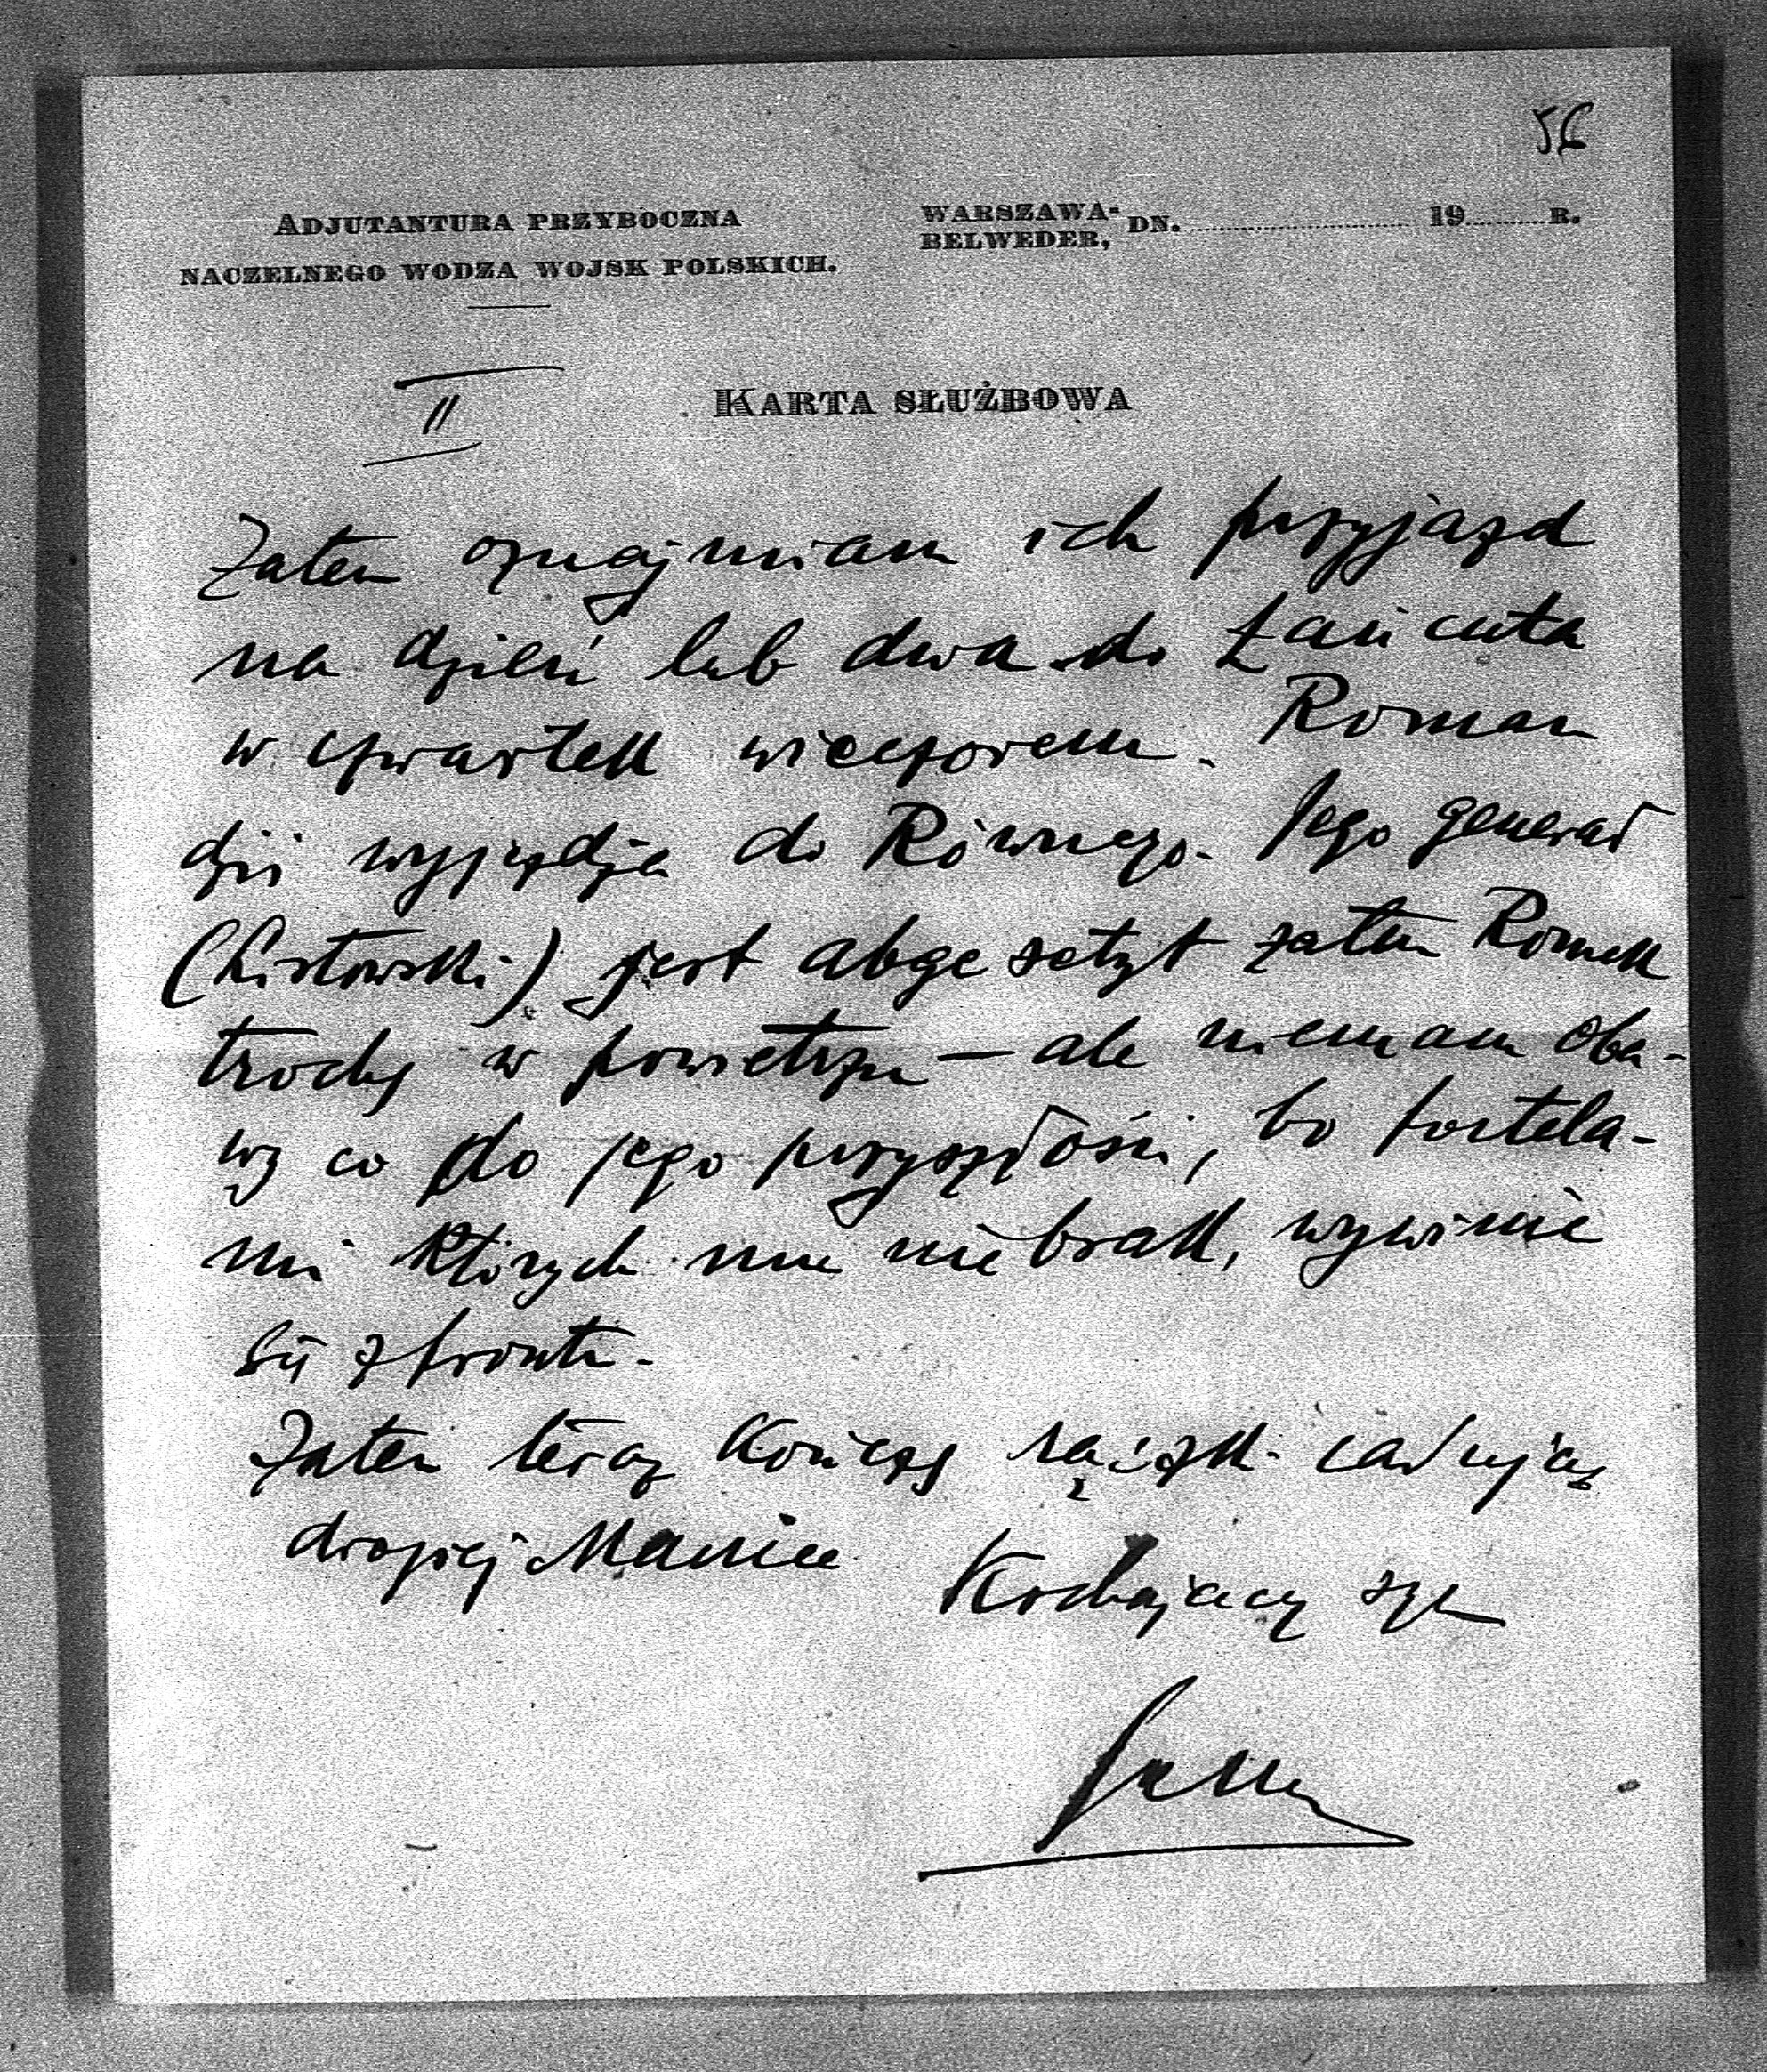 56
ADJUTANTURA PRZYBOCZNA
NACZELNEGO WODZA WOJSK POLSKICH.
WARSZAWA-
BELWEDER, DN. 19 R.
II
KARTA SŁUŻBOWA
Zatem oznajmiam ich przyjazd
na dzień lub dwa do Łańcuta
w czwartek wieczorem. Roman
dziś wyjeżdża do Równego. Jego generał
(Listowski) jest abgesetzt zatem Romek
trochę w powietrzu — ale niemam oba-
wy co do jego przyszłości, bo fortela-
mi których mu nie brak, wywinie
się z frontu.
Zatem teraz kończę rączki całując
drogiej Mamie
Kochający syn